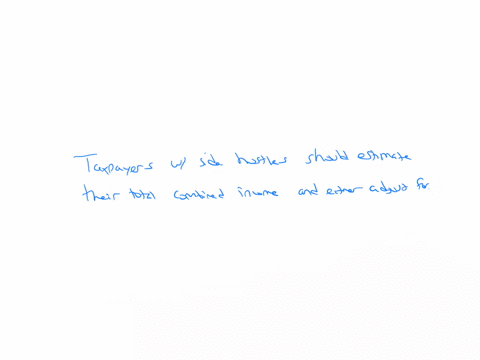 Taxpayers w/ side hustles should estimate
their total combined income and either adjust for